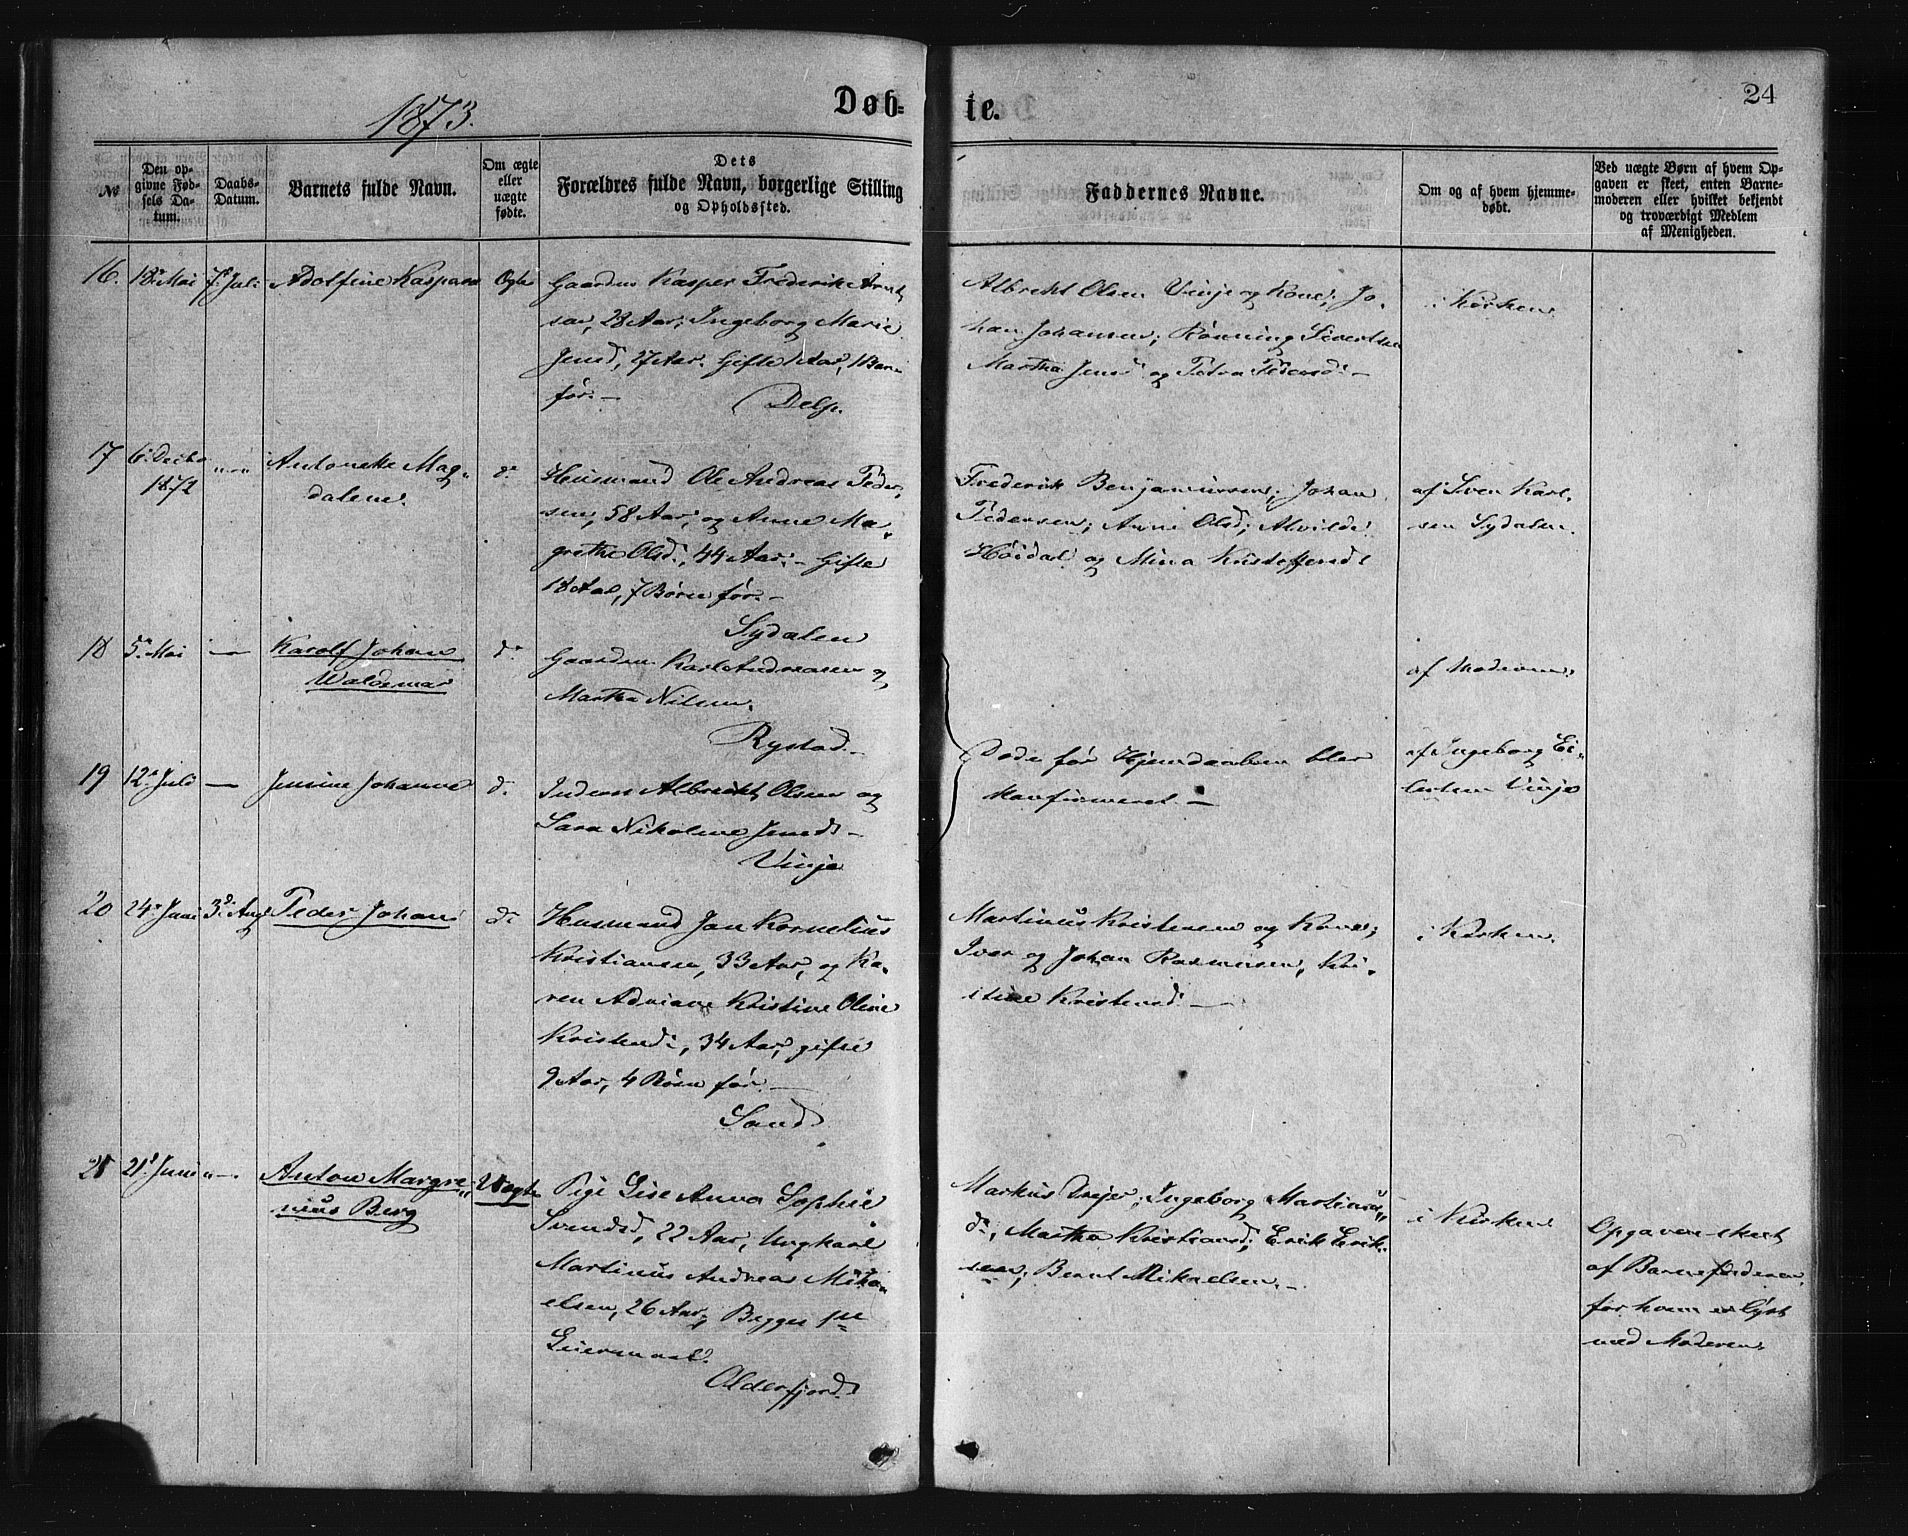 1873.
Døb=
te.
24
№
Den op-
givne Fød-
sels Da-
tum.
Daabs-
Datum.
Barnets fulde Navn.
Om ægte
eller
uægte
fødte.
Dets
Forældres fulde Navn, borgerlige Stilling
og Opholdssted.
Faddernes Navne.
Om og af hvem hjemme-
døbt.
Ved uægte Børn af hvem Op-
gaven er skeet, enten Barne-
moderen eller hvilket bekjendt
og troværdigt Medlem
af Menigheden.
16. 18de Mai 7de Juli Adolfine Kaspara Ægte
Gaardm. Kasper Frederik Arnt-
sen, 28 Aar; Ingeborg Marie
Jensd, 27 Aar. Gifte 1 Aar, 1 Barn
før.—
Delp.
Albrekt Olsen Vinje og Kone; Jo-
han Johansen; Rønning Sivertsen
Martha Jensd og Petra Pedersd.—
i Kirken.
17 6. Decbr
1872
Antonette Mag-
dalene.
do
Husmand Ole Andreas Peder-
sen, 58 Aar, og Anne Ma-
grethe Olsd., 44 Aar.— Gifte
18 Aar, 7 Børn før.—
Sydalen
Frederik Benjaminsen; Johan
Pedersen; Anne Olsd; Alvilde
Høidal og Mina Kristoffersd.
af Sven Karl-
sen Sydalen.
18 5te Mai — Karolf Johan
Waldemar
do
Gaardm. Karl Andreassen og
Martha Nilsen.
Rystad.—
af Moderen.
19 12te Juli — Jensine Johanne do
Inderst Albrekt Olsen og
Sara Nikoline Jensd.—
Vinje
Døde før Hjemdaaben blev
Konfirmeret.—
af Ingeborg Ei-
lertsen Vinje
20 24de Juni 3die Aug Peder Johan do
Husmand Jan Kornelius
Kristiansen, 33 Aar, og Ka-
ren Adriane Kristine Oline
Kristensd., 34 Aar, gifte
9 Aar, 4 Børn før.—
Sand.
Martinus Kristensen og Kone;
Iver og Johan Rasmussen, Kri-
stine Kristensd.—
i Kirken.
21 21de Juni „—. Anton Margre-
nius Berg
Uægte
Pige Lise Anna Sophie
Svendsd, 22 Aar, Ungkarl
Martinus Andreas Mika-
elsen, 26 Aar, Begges 1ste
Leiermaal.
Alderfjord.
Markus Drejer; Ingeborg Martinus-
d., Martha Kristiansd; Erik Erik-
sen; Bernt Mikaelsen.—
i Kirken
Opgaven skeet
af Barnefaderen,
før ham er lyst
med Moderen.